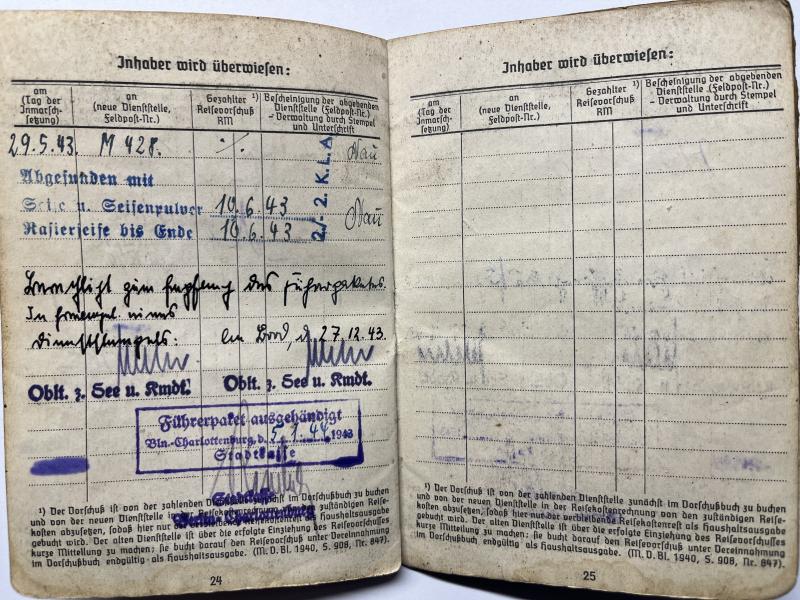 Inhaber wird überwiesen:
am
(Tag der
Inmarsch-
setzung)
an
(neue Dienststelle,
Feldpost-Nr.)
Gezahlter ¹)
Reisevorschuß
RM
Bescheinigung der abgebenden
Dienststelle (Feldpost-Nr.)
- Verwaltung durch Stempel
und Unterschrift
29.5.43. M 428. ·/.
Abgefunden mit
Seife u. Seifenpulver 10.6.43
Rasierseife bis Ende 10.6.43
2./2. K.L.A
Berechtigt zum Empfang des Führerpaketes.
In Ermangel eines
Dienststempels. An Bord, d. 27.12.43.
Oblt. z. See u. Kmdt. Oblt. z. See u. Kmdt.
Führerpaket ausgehändigt
Bln.-Charlottenburg, d. 5.1.44 1943
Stadtkasse
Stadtkasse
Berlin-Charlottenburg
¹) Der Vorschuß ist von der zahlenden Dienststelle zunächst im Vorschußbuch zu buchen
und von der neuen Dienststelle in der Reisekostenrechnung von den zuständigen Reise-
kosten abzusetzen, sodaß hier nur der verbleibende Reisekostenrest als Haushaltsausgabe
gebucht wird. Der alten Dienststelle ist über die erfolgte Einziehung des Reisevorschusses
kurze Mitteilung zu machen; sie bucht darauf den Reisevorschuß unter Vereinnahmung
im Vorschußbuch endgültig als Haushaltsausgabe. (M. D. Bl. 1940, S. 908, Nr. 847).
24
Inhaber wird überwiesen:
am
(Tag der
Inmarsch-
setzung)
an
(neue Dienststelle,
Feldpost-Nr.)
Gezahlter ¹)
Reisevorschuß
RM
Bescheinigung der abgebenden
Dienststelle (Feldpost-Nr.)
- Verwaltung durch Stempel
und Unterschrift
¹) Der Vorschuß ist von der zahlenden Dienststelle zunächst im Vorschußbuch zu buchen
und von der neuen Dienststelle in der Reisekostenrechnung von den zuständigen Reise-
kosten abzusetzen, sodaß hier nur der verbleibende Reisekostenrest als Haushaltsausgabe
gebucht wird. Der alten Dienststelle ist über die erfolgte Einziehung des Reisevorschusses
kurze Mitteilung zu machen; sie bucht darauf den Reisevorschuß unter Vereinnahmung
im Vorschußbuch endgültig als Haushaltsausgabe. (M. D. Bl. 1940, S. 908, Nr. 847).
25